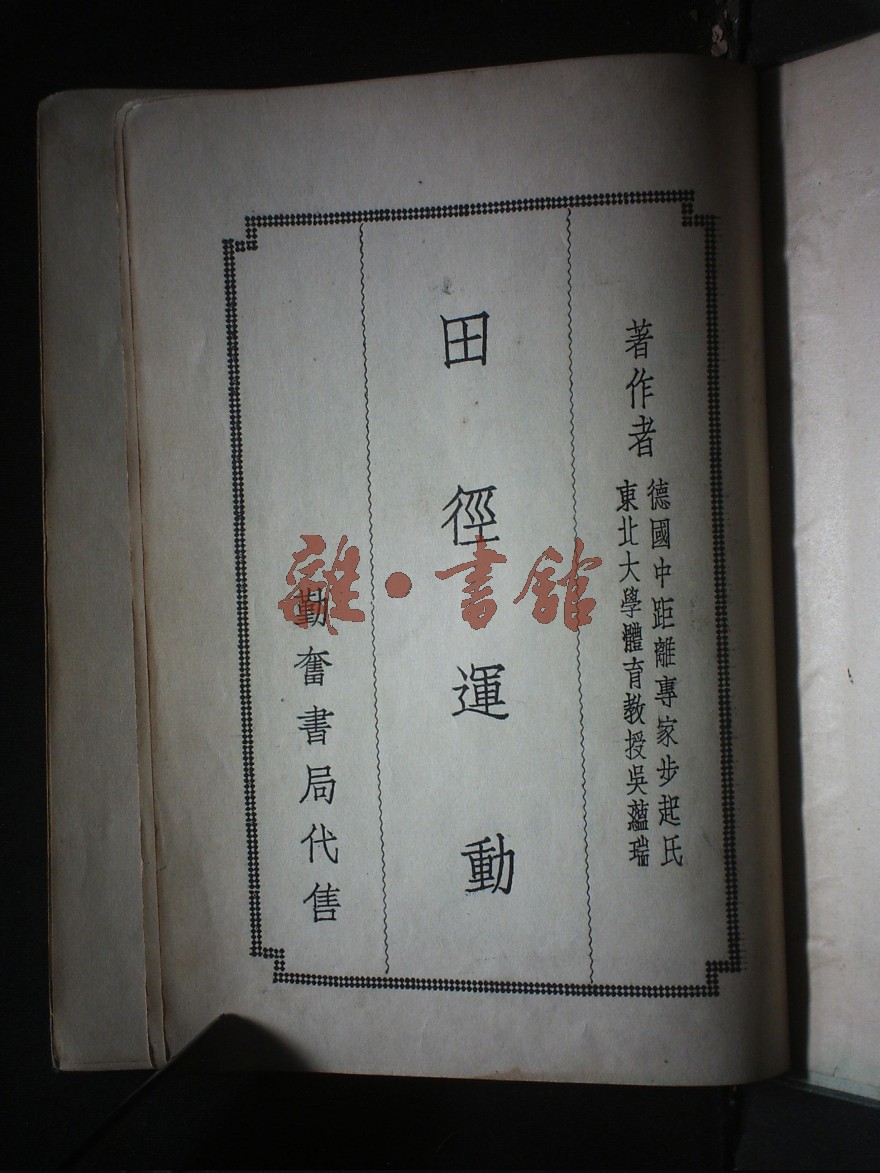 著作者
德國中距離專家步起氏
東北大學體育教授吳蘊瑞
田徑運動
勤奮書局代售
雜·書館